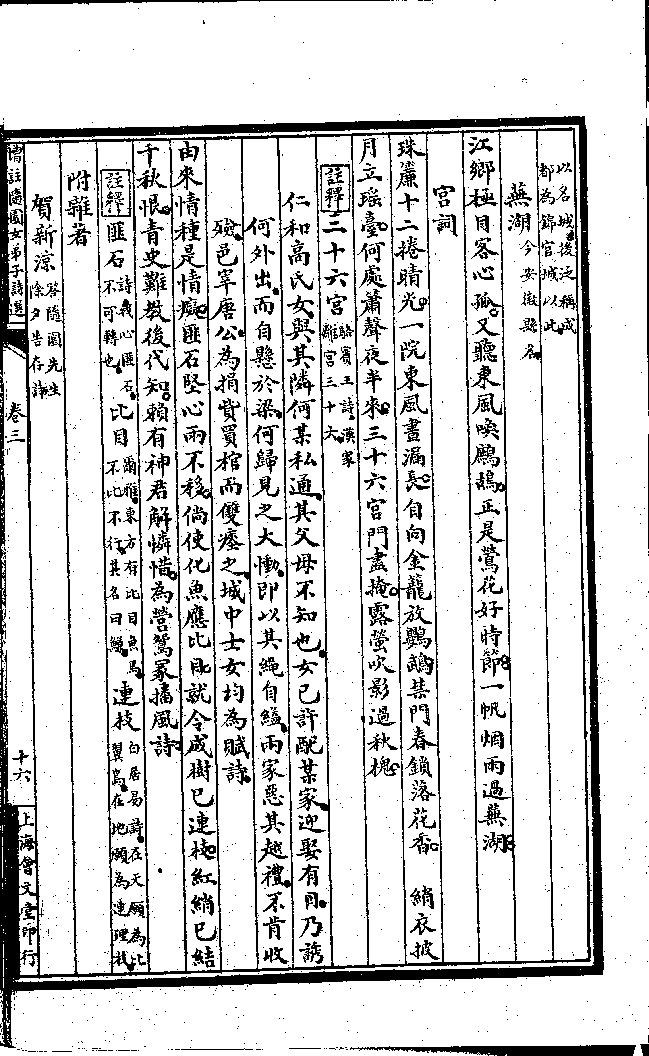 以名城後遂稱成
都為錦官城以此
蕪湖今安徽縣名
江鄉極目客心孤又聽東風喚鷓鴣正是鶯花好時節一帆烟雨過蕪湖
宮詞
珠簾十二捲晴光一院東風晝漏長自向金籠放鸚鵡禁門春鎖落花香　綃衣披
月立瑤臺何處蕭聲夜半來三十六宮門盡掩露螢吹影過秋槐
註釋三十六宮駱賓王詩漢家離宮三十六
仁和高氏女與其隣何某私通其父母不知也女已許配某家迎娶有日乃誘
何外出而自懸於梁何歸見之大慟即以其繩自縊兩家惡其越禮不肯收
殮邑宰唐公為捐貲買棺而雙瘞之城中士女均為賦詩
由來情種是情癡匪石堅心兩不移倘使化魚應比目就令成樹已連枝紅綃已結
千秋恨青史難教後代知賴有神君解憐惜為營鴛冢播風詩
註釋匪石詩我心匪石不可轉也比目爾雅東方有比目魚焉不比不行其名曰鰈連枝白居易詩在天願為比翼鳥在地願為連理枝
附雜著
賀新涼答隨園先生除夕告存詩
增註隨園女弟子詩選
卷三
十六
上海會文堂印行